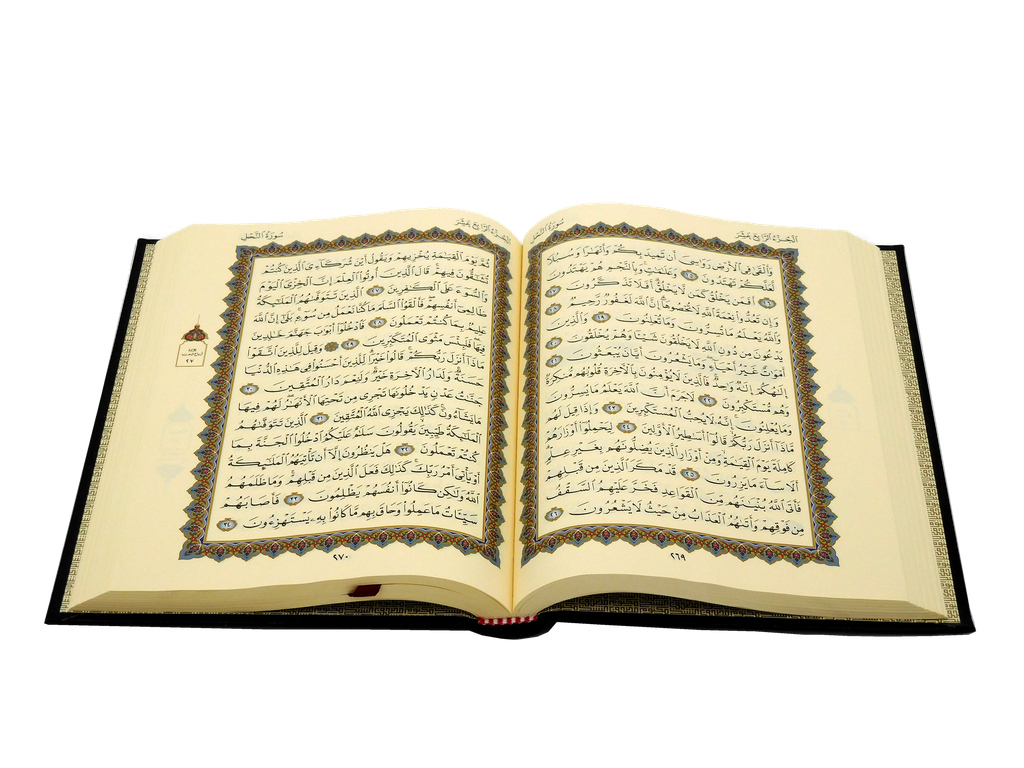 ٱلْجُزْءُ ٱلرَّابِعَ عَشَرَ سُورَةُ ٱلنَّحْلِ
وَأَلْقَىٰ فِي ٱلْأَرْضِ رَوَٰسِيَ أَن تَمِيدَ بِكُمْ وَأَنْهَٰرًا وَسُبُلًا
لَّعَلَّكُمْ تَهْتَدُونَ ١٥ وَعَلَٰمَٰتٍ وَبِٱلنَّجْمِ هُمْ يَهْتَدُونَ
١٦ أَفَمَن يَخْلُقُ كَمَن لَّا يَخْلُقُ أَفَلَا تَذَكَّرُونَ ١٧
وَإِن تَعُدُّوا۟ نِعْمَةَ ٱللَّهِ لَا تُحْصُوهَآ إِنَّ ٱللَّهَ لَغَفُورٌ رَّحِيمٌ ١٨
وَٱللَّهُ يَعْلَمُ مَا تُسِرُّونَ وَمَا تُعْلِنُونَ ١٩ وَٱلَّذِينَ
يَدْعُونَ مِن دُونِ ٱللَّهِ لَا يَخْلُقُونَ شَيْـًٔا وَهُمْ يُخْلَقُونَ ٢٠
أَمْوَٰتٌ غَيْرُ أَحْيَآءٍ وَمَا يَشْعُرُونَ أَيَّانَ يُبْعَثُونَ ٢١
إِلَٰهُكُمْ إِلَٰهٌ وَٰحِدٌ فَٱلَّذِينَ لَا يُؤْمِنُونَ بِٱلْءَاخِرَةِ قُلُوبُهُم مُّنكِرَةٌ
وَهُم مُّسْتَكْبِرُونَ ٢٢ لَا جَرَمَ أَنَّ ٱللَّهَ يَعْلَمُ مَا يُسِرُّونَ
وَمَا يُعْلِنُونَ إِنَّهُۥ لَا يُحِبُّ ٱلْمُسْتَكْبِرِينَ ٢٣ وَإِذَا قِيلَ لَهُم
مَّاذَآ أَنزَلَ رَبُّكُمْ قَالُوٓا۟ أَسَٰطِيرُ ٱلْأَوَّلِينَ ٢٤ لِيَحْمِلُوٓا۟ أَوْزَارَهُمْ
كَامِلَةً يَوْمَ ٱلْقِيَٰمَةِ وَمِنْ أَوْزَارِ ٱلَّذِينَ يُضِلُّونَهُم بِغَيْرِ عِلْمٍ
أَلَا سَآءَ مَا يَزِرُونَ ٢٥ قَدْ مَكَرَ ٱلَّذِينَ مِن قَبْلِهِمْ
فَأَتَى ٱللَّهُ بُنْيَٰنَهُم مِّنَ ٱلْقَوَاعِدِ فَخَرَّ عَلَيْهِمُ ٱلسَّقْفُ
مِن فَوْقِهِمْ وَأَتَىٰهُمُ ٱلْعَذَابُ مِنْ حَيْثُ لَا يَشْعُرُونَ ٢٦
٢٦٩
ٱلْجُزْءُ ٱلرَّابِعَ عَشَرَ سُورَةُ ٱلنَّحْلِ
ثُمَّ يَوْمَ ٱلْقِيَٰمَةِ يُخْزِيهِمْ وَيَقُولُ أَيْنَ شُرَكَآءِىَ ٱلَّذِينَ كُنتُمْ
تُشَٰٓقُّونَ فِيهِمْ قَالَ ٱلَّذِينَ أُوتُوا۟ ٱلْعِلْمَ إِنَّ ٱلْخِزْىَ ٱلْيَوْمَ
وَٱلسُّوٓءَ عَلَى ٱلْكَٰفِرِينَ ٢٧ ٱلَّذِينَ تَتَوَفَّىٰهُمُ ٱلْمَلَٰٓئِكَةُ
ظَالِمِىٓ أَنفُسِهِمْ فَأَلْقَوُا۟ ٱلسَّلَمَ مَا كُنَّا نَعْمَلُ مِن سُوٓءٍۭ بَلَىٰٓ إِنَّ ٱللَّهَ
عَلِيمٌۢ بِمَا كُنتُمْ تَعْمَلُونَ ٢٨ فَٱدْخُلُوٓا۟ أَبْوَٰبَ جَهَنَّمَ خَٰلِدِينَ
فِيهَا فَلَبِئْسَ مَثْوَى ٱلْمُتَكَبِّرِينَ ٢٩ ۞ وَقِيلَ لِلَّذِينَ ٱتَّقَوْا۟
مَاذَآ أَنزَلَ رَبُّكُمْ قَالُوا۟ خَيْرًا لِّلَّذِينَ أَحْسَنُوا۟ فِى هَٰذِهِ ٱلدُّنْيَا
حَسَنَةٌ وَلَدَارُ ٱلْءَاخِرَةِ خَيْرٌ وَلَنِعْمَ دَارُ ٱلْمُتَّقِينَ ٣٠
جَنَّٰتُ عَدْنٍ يَدْخُلُونَهَا تَجْرِى مِن تَحْتِهَا ٱلْأَنْهَٰرُ لَهُمْ فِيهَا
مَا يَشَآءُونَ كَذَٰلِكَ يَجْزِى ٱللَّهُ ٱلْمُتَّقِينَ ٣١ ٱلَّذِينَ تَتَوَفَّىٰهُمُ
ٱلْمَلَٰٓئِكَةُ طَيِّبِينَ يَقُولُونَ سَلَٰمٌ عَلَيْكُمُ ٱدْخُلُوا۟ ٱلْجَنَّةَ بِمَا
كُنتُمْ تَعْمَلُونَ ٣٢ هَلْ يَنظُرُونَ إِلَّآ أَن تَأْتِيَهُمُ ٱلْمَلَٰٓئِكَةُ
أَوْ يَأْتِىَ أَمْرُ رَبِّكَ كَذَٰلِكَ فَعَلَ ٱلَّذِينَ مِن قَبْلِهِمْ وَمَا ظَلَمَهُمُ
ٱللَّهُ وَلَٰكِن كَانُوٓا۟ أَنفُسَهُمْ يَظْلِمُونَ ٣٣ فَأَصَابَهُمْ
سَيِّـَٔاتُ مَا عَمِلُوا۟ وَحَاقَ بِهِم مَّا كَانُوا۟ بِهِۦ يَسْتَهْزِءُونَ ٣٤
٢٧
٢٧٠